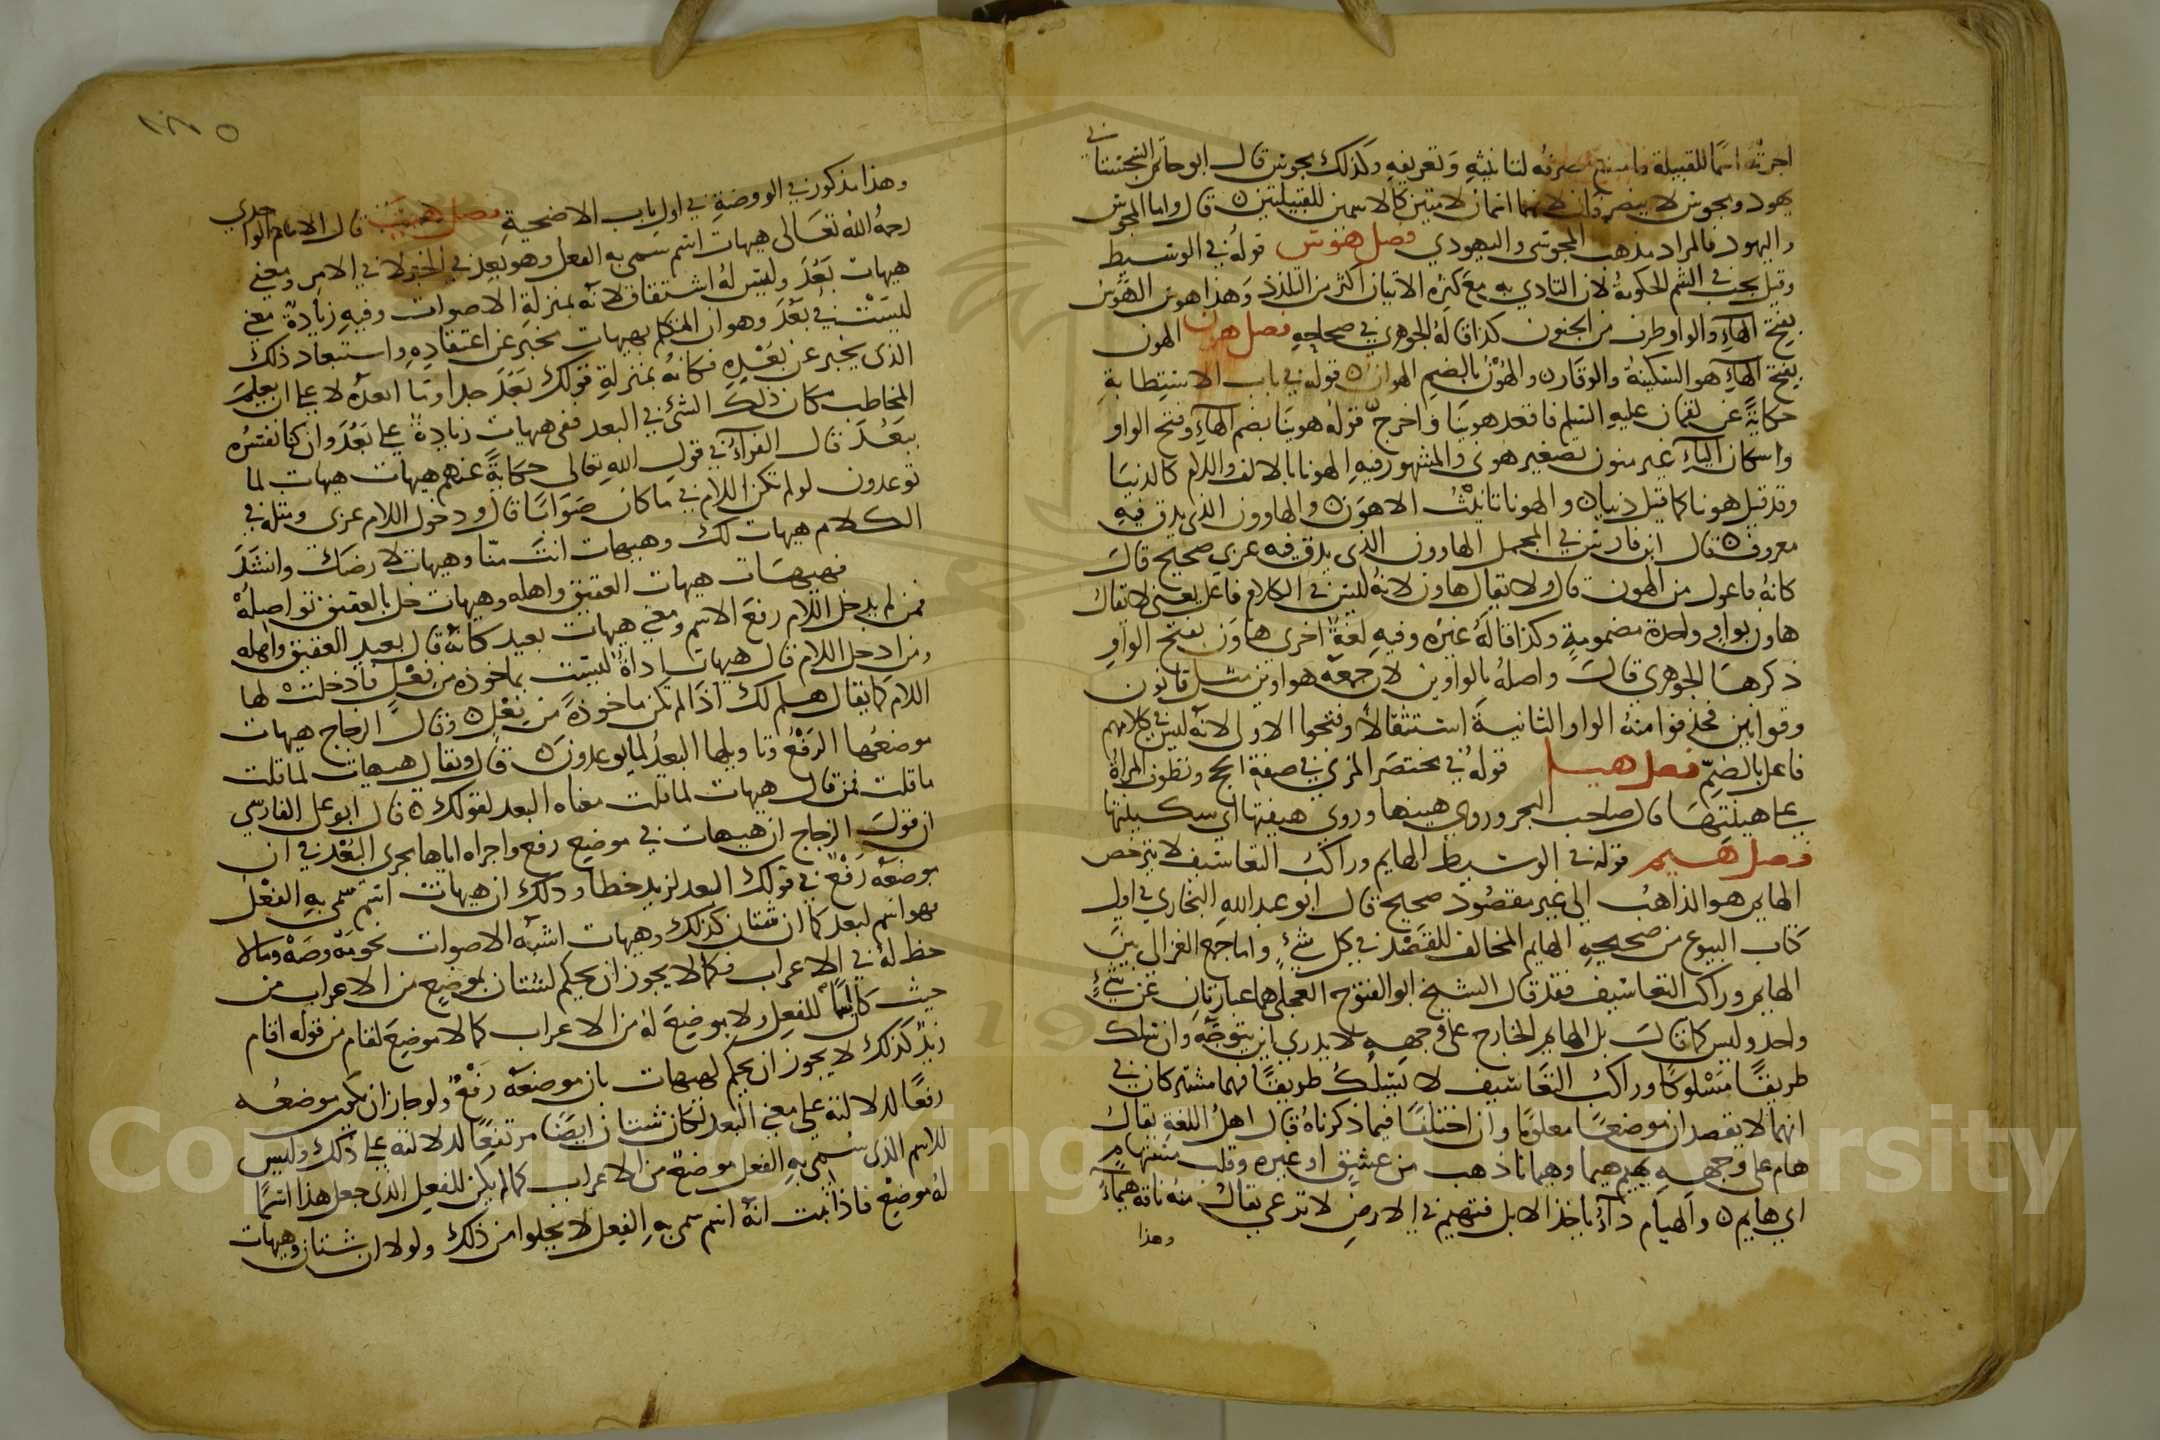 اجريته اسما للقبيلة فامتنع صرفه لتانيثه وتعريفه وكذلك مجوس قال ابو حاتم السجستاني في
يهود ومجوس لا ينصرفان لانهما اسمان لامتين كالاسمين للقبيلتين قال واما المجوس
واليهود فالمراد مذهب المجوسي واليهودي فصل هوش قوله في الوسيط
وقيل يجب في الشم الحكومة لان التاذي به مع كثرة الانتان اكثر من التلذذ وهذا هوس الهوس
بفتح الهاء والواو طرف من الجنون كذا قاله الجوهري في صحاحه فصل هون الهون
بفتح الهاء هو السكينة والوقار والهون بالضم الهوان قوله في باب الاستطابة
حكاية عن لقمان عليه السلم فاقعد هوينا واخرج قوله هوينا بضم الهاء وفتح الواو
واسكان الياء غير منون تصغير هونى والمشهور فيه الهونا بالالف واللام كالدنيا
وقد قيل هونا كما قيل دنيا والهونا تانيث الاهون والهاوون الذي يدق فيه
معروف قال ابن فارس في المجمل الهاوون الذي يدق فيه عربي صحيح قال
كانه فاعول من الهون قال ولا يقال هاون لانه ليس في الكلام فاعل يعني لا يقال
هاون بواو واحدة مضمومة وكذا قاله غيره وفيه لغة اخرى هاون بفتح الواو
ذكرها الجوهري قال واصله بالواوين لان جمعه هواوين مثل قانون
وقوانين فحذفوا منه الواو الثانية استثقالا وفتحوا الاولى لانه ليس في كلامهم
فاعل بالضم فصل هيـ قوله في مختصر المزني في صفة الحج وتطوف المراة
على هينتها قال صاحب البحر وروي هينها وروي هيفتها اي سكينتها
فصل هيم قوله في الوسيط الهايم وراكب التعاسيف لا يترخص
الهايم هو الذاهب الى غير مقصود صحيح قال ابو عبد الله البخاري في اول
كتاب البيوع من صحيحه الهايم المخالف للقصد في كل شيء واما جمع الغزالي بين
الهايم وراكب التعاسيف فقد قال الشيخ ابو الفتوح العجلي هما عبارتان عن شيء
واحد وليس كما قال بل الهايم الخارج على وجهه لا يدري اين يتوجه وان سلك
طريقا مسلوكا وراكب التعاسيف لا يسلك طريقا فهما مشتركان في
انهما لا يقصدان موضعا معلوما وان اختلفا فيما ذكرناه قال اهل اللغة يقال
هام على وجهه يهيم هيما وهيمانا ذهب من عشق او غيره وقلب مستهام
اي هايم والهيام داء ياخذ الابل فتهيم في الارض لا ترعى يقال منه ناقة هيماء
وهذا
١٨٥
وهذا مذكور في الروضة في اول باب الاضحية فصل هيت قال الامام الواحدي
رحمه الله تعالى هيهات اسم سمي به الفعل وهو بعد في الخبر لا في الامر ومعنى
هيهات بعد وليس له اشتقاق لانه بمنزلة الاصوات وفيه زيادة معنى
ليست في بعد وهو ان المتكلم بهيهات مخبر عن اعتقاده واستبعاد ذلك
الذي يخبر عن بعده فكانه بمنزلة قولك بعد جدا وما ابعده لا على ان يعلم
المخاطب مكان ذلك الشئ في البعد ففي هيهات زيادة على بعد وان كنا نفسره
ببعد قال الفراء في قول الله تعالى حكاية عنهم هيهات هيهات لما
توعدون لو لم تكن اللام في ما كان صوابا قال ودخول اللام عربي ومثله في
الكلام هيهات لك وهيهات انت منا وهيهات لارضك وانشد
فهيهات هيهات العقيق واهله وهيهات خل بالعقيق تواصله
فمن لم يدخل اللام رفع الاسم ومعنى هيهات بعيد كانه قال بعيد العقيق واهله
ومن ادخل اللام قال هيهات اداة ليست بماخوذة من فعل فادخلت لها
اللام كما يقال هلم لك اذ لم تكن ماخوذة من فعل وقال الزجاج هيهات
موضعها الرفع وتاويلها البعد لما يوعدون قال ويقال هيهات لما قلت
ما قلت فمن قال هيهات لما قلت معناه البعد لقولك قال ابو علي الفارسي
ان قول الزجاج ان هيهات في موضع رفع واجراه اياها مجرى البعد في ان
موضعه رفع في قولك البعد لزيد خطا وذلك ان هيهات اسم سمي به الفعل
فهو اسم لبعد كما ان شتان كذلك وهيهات اشبه الاصوات نحو مه وصه وما لا
حظ له في الاعراب فكما لا يجوز ان يحكم لشتان بموضع من الاعراب من
حيث كان اسما للفعل ولا موضع له من الاعراب كما لا موضع لقام من قوله اقام
زيد كذلك لا يجوز ان يحكم لهيهات بان موضعه رفع ولو جاز ان يكون موضعه
رفعا لدلالته على معنى البعد لكان شتان ايضا مرتفعا لدلالته على ذلك وليس
للاسم الذي سمي به الفعل موضع من الاعراب كما لم يكن للفعل الذي جعل هذا اسما
له موضع فاذا ثبت انه اسم سمي به الفعل لا يخلوا من ذلك ولولا ان شتان وهيهات
Copyright King University
19